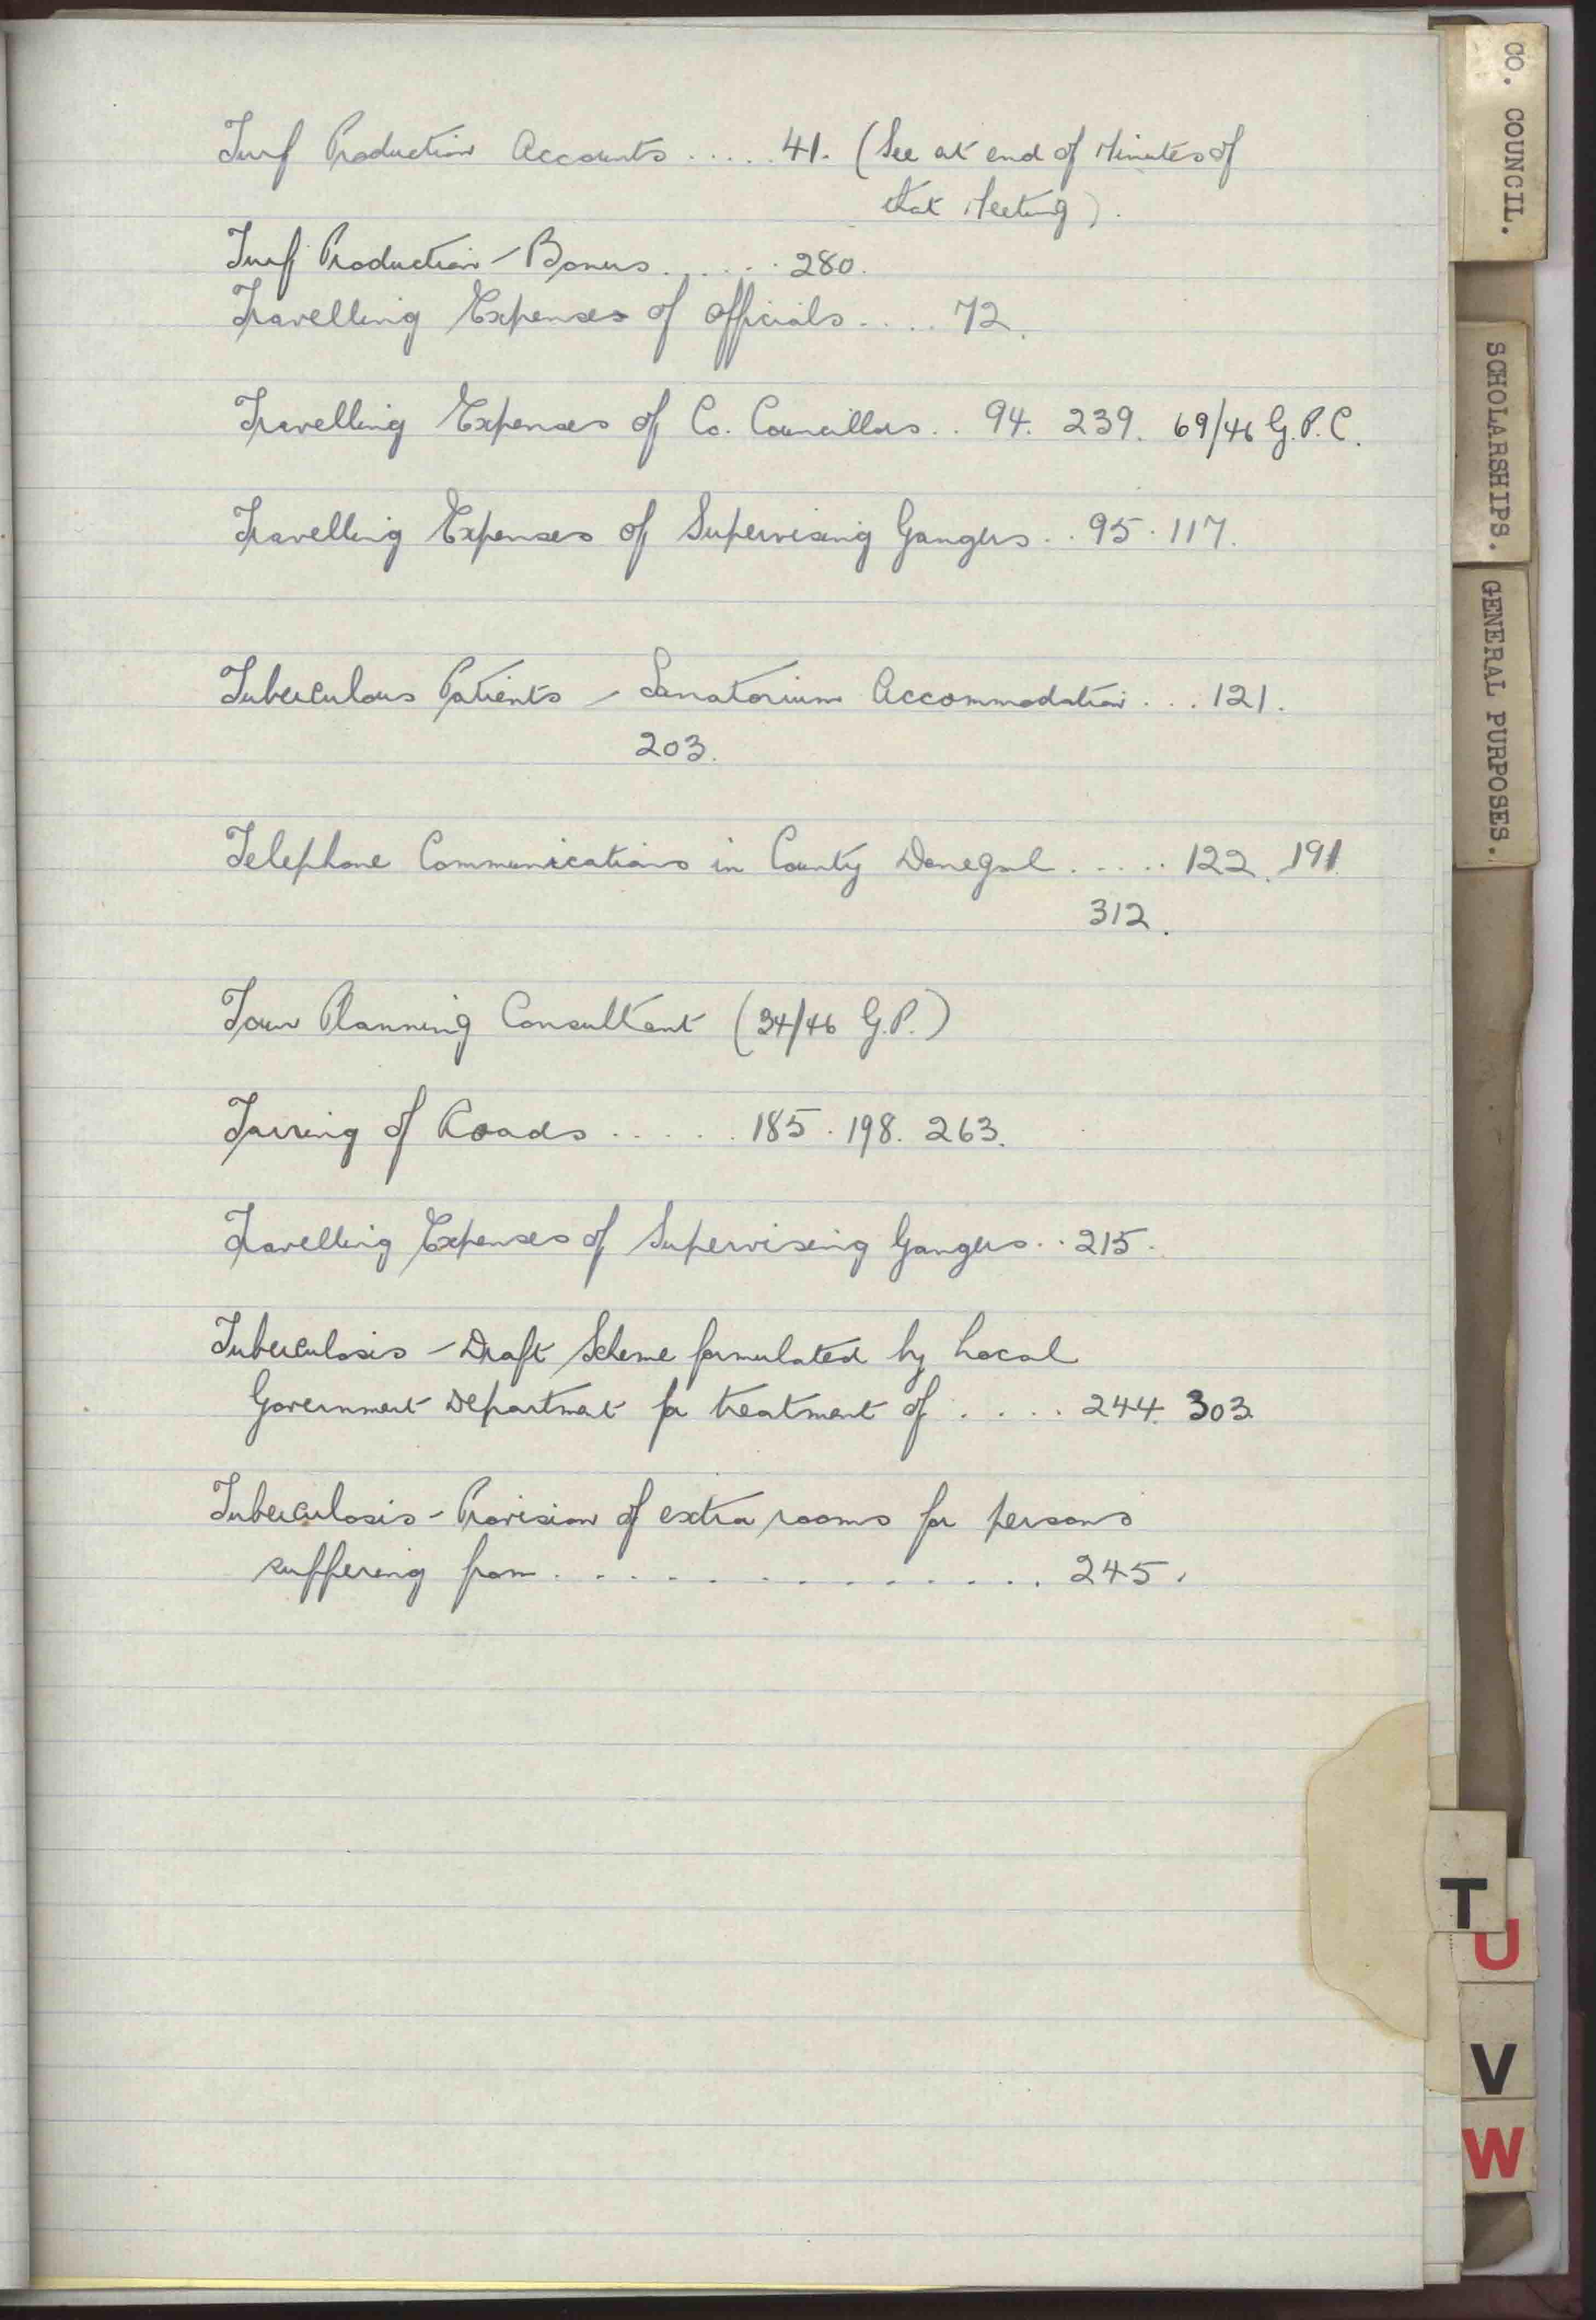 Turf Production Accounts ..... 41. (See at end of Minutes of
that Meeting).
Turf Production - Bonus ..... 280.
Travelling Expenses of Officials .... 72.
Travelling Expenses of Co. Councillors .. 94. 239. 69/46 G.P.C.
Travelling Expenses of Supervising Gangers .. 95. 117.
Tuberculous Patients - Sanatorium Accommodation ... 121.
203.
Telephone Communications in County Donegal ..... 122. 191.
312.
Town Planning Consultant (34/46 G.P.)
Tarring of Roads ...... 185. 198. 263.
Travelling Expenses of Supervising Gangers .. 215.
Tuberculosis - Draft Scheme formulated by Local
Government Department for treatment of ..... 244. 303.
Tuberculosis - Provision of extra rooms for persons
suffering from .............. 245.
CO. COUNCIL.
SCHOLARSHIPS.
GENERAL PURPOSES.
T
U
V
W